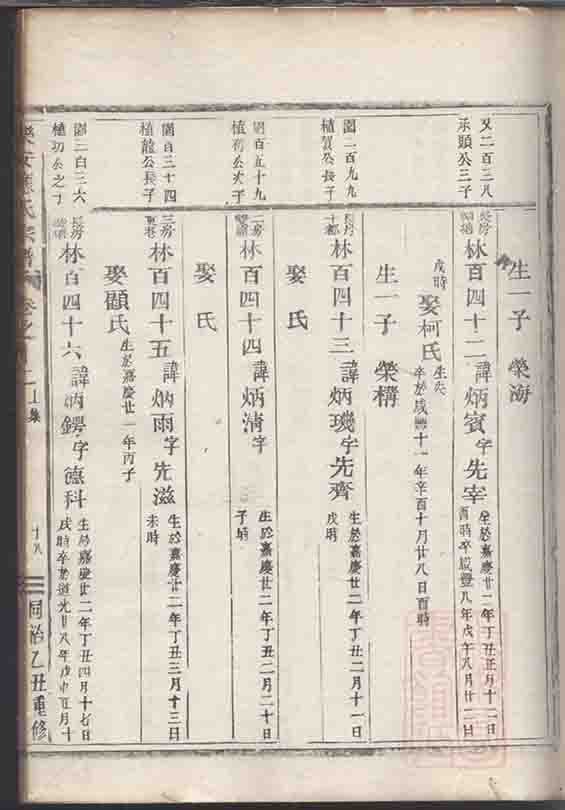 又二百三八
示頭公三子
生一子 榮海
長房
林百四十二 諱炳賓字先宰
生於嘉慶廿二年丁丑正月十二日
酉時卒咸豐八年戊午八月廿二日
戌時
娶柯氏
生失
卒於咸豐十一年辛酉十月廿八日酉時
生一子 榮構
園二百九九
植賀公長子
長房
林百四十三 諱炳璣字先齊
生於嘉慶廿二年丁丑二月十一日
戌時
娶氏
園百五十九
植初公次子
二房
林百四十四 諱炳淸字
生於嘉慶廿二年丁丑二月二十日
子時
娶氏
園百三十四
植龍公長子
三房
林百四十五 諱炳雨字先滋
生於嘉慶廿二年丁丑三月十三日
未時
娶顧氏
生於嘉慶廿一年丙子
園二百三六
植初公之子
長房
林百四十六 諱炳鍔字德科
生於嘉慶廿二年丁丑四月十七日
戌時卒於道光廿八年戊申五月十
氏宗譜
卷之
上集
十八
同治乙丑重修